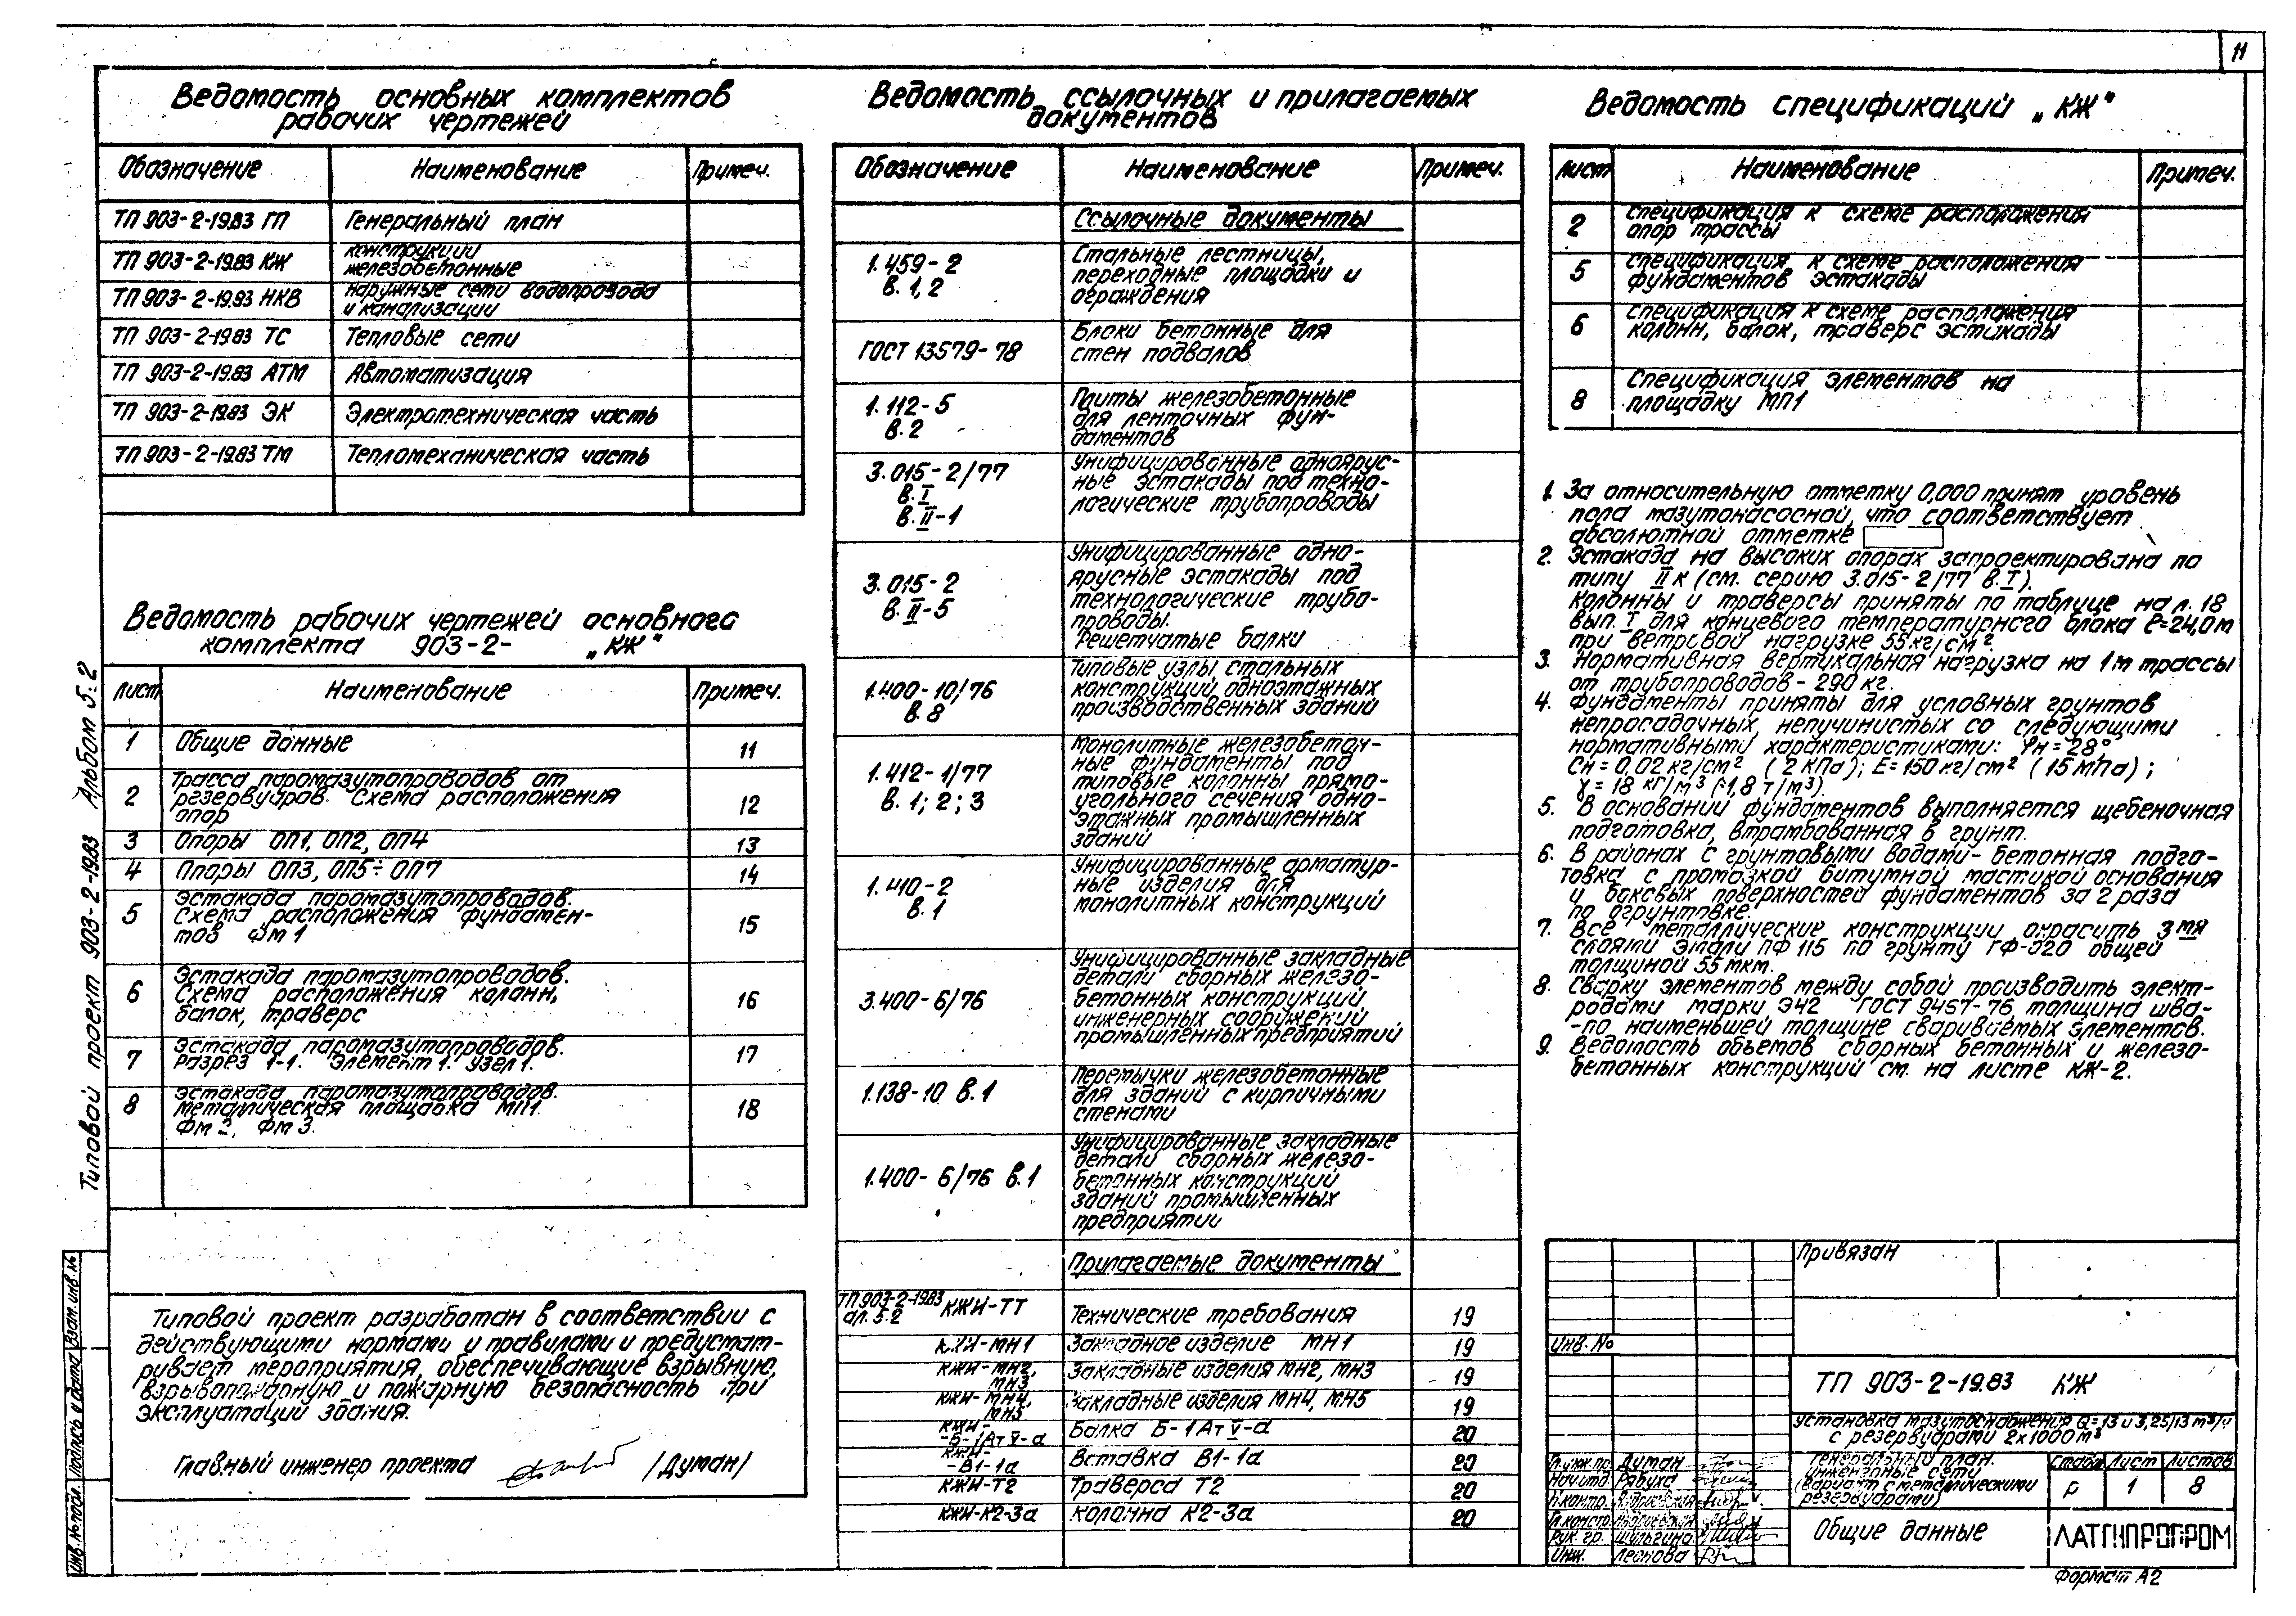 11
Ведомость основных комплектов
рабочих чертежей
Обозначение Наименование Примеч.
ТП 903-2-19.83 ГП Генеральный план
ТП 903-2-19.83 КЖ Конструкции
железобетонные
ТП 903-2-19.83 НКВ Наружные сети водопровода
и канализации
ТП 903-2-19.83 ТС Тепловые сети
ТП 903-2-19.83 АТМ Автоматизация
ТП 903-2-19.83 ЭК Электротехническая часть
ТП 903-2-19.83 ТМ Тепломеханическая часть
Ведомость рабочих чертежей основного
комплекта 903-2- „КЖ"
Лист Наименование Примеч.
1 Общие данные 11
2 Трасса паромазутопроводов от
резервуаров. Схема расположения
опор 12
3 Опоры ОП1, ОП2, ОП4 13
4 Опоры ОП3, ОП5÷ОП7 14
5 Эстакада паромазутопроводов.
Схема расположения фундамен-
тов Фм1 15
6 Эстакада паромазутопроводов.
Схема расположения колонн,
балок, траверс 16
7 Эстакада паромазутопроводов.
Разрез 1-1. Элемент 1. Узел 1. 17
8 Эстакада паромазутопроводов.
Металлическая площадка МП1.
Фм2, Фм3. 18
Типовой проект разработан в соответствии с
действующими нормами и правилами и предусмат-
ривает мероприятия, обеспечивающие взрывную,
взрывопожарную и пожарную безопасность при
эксплуатации здания.
Главный инженер проекта /Думан/
Типовой проект 903-2-19.83 Альбом 5.2
Инв.№ подл. Подпись и дата Взам. инв.№
Ведомость ссылочных и прилагаемых
документов
Обозначение Наименование Примеч.
Ссылочные документы
1.459-2
в. 1, 2
Стальные лестницы,
переходные площадки и
ограждения
ГОСТ 13579-78
Блоки бетонные для
стен подвалов
1.112-5
в. 2
Плиты железобетонные
для ленточных фун-
даментов
3.015-2/77
в. I
в. II-1
Унифицированные одноярус-
ные эстакады под техно-
логические трубопроводы
3.015-2
в. II-5
Унифицированные одно-
ярусные эстакады под
технологические трубо-
проводы.
Решетчатые балки
1.400-10/76
в. 8
Типовые узлы стальных
конструкций одноэтажных
производственных зданий
1.412-1/77
в. 1; 2; 3
Монолитные железобетон-
ные фундаменты под
типовые колонны прямо-
угольного сечения одно-
этажных промышленных
зданий
1.410-2
в. 1
Унифицированные арматур-
ные изделия для
монолитных конструкций
3.400-6/76
Унифицированные закладные
детали сборных железо-
бетонных конструкций
инженерных сооружений
промышленных предприятий
1.138-10 в.1
Перемычки железобетонные
для зданий с кирпичными
стенами
1.400-6/76 в.1
Унифицированные закладные
детали сборных железо-
бетонных конструкций
зданий промышленных
предприятии
Прилагаемые документы
ТП 903-2-19.83
ал. 5.2 КЖИ-ТТ Технические требования 19
КЖИ-МН1 Закладное изделие МН1 19
КЖИ-МН2,
МН3 Закладные изделия МН2, МН3 19
КЖИ-МН4,
МН5 Закладные изделия МН4, МН5 19
КЖИ-
-Б-1АтV-а Балка Б-1АтV-а 20
КЖИ-
-В1-1а Вставка В1-1а 20
КЖИ-Т2 Траверса Т2 20
КЖИ-К2-3а Колонна К2-3а 20
Ведомость спецификаций „КЖ"
Лист Наименование Примеч.
2 Спецификация к схеме расположения
опор трассы
5 Спецификация к схеме расположения
фундаментов эстакады
6 Спецификация к схеме расположения
колонн, балок, траверс эстакады
8 Спецификация элементов на
площадку МП1
1. За относительную отметку 0,000 принят уровень
пола мазутонасосной, что соответствует
абсолютной отметке
2. Эстакада на высоких опорах запроектирована по
типу IIк (см. серию 3.015-2/77 в.I).
Колонны и траверсы приняты по таблице на л. 18
вып. I для концевого температурного блока ℓ=24,0м
при ветровой нагрузке 55 кг/см².
3. Нормативная вертикальная нагрузка на 1м трассы
от трубопроводов - 290 кг.
4. Фундаменты приняты для условных грунтов
непросадочных, непучинистых со следующими
нормативными характеристиками: φн=28°,
Cн=0,02 кг/см² (2 КПа); E=150 кг/см² (15 МПа);
γ=18 кг/м³ (1,8 т/м³).
5. В основании фундаментов выполняется щебеночная
подготовка, втрамбованная в грунт.
6. В районах с грунтовыми водами - бетонная подго-
товка с промазкой битумной мастикой основания
и боковых поверхностей фундаментов за 2 раза
по огрунтовке.
7. Все металлические конструкции окрасить 3мя
слоями эмали ПФ 115 по грунту ГФ-020 общей
толщиной 55 мкм.
8. Сварку элементов между собой производить элект-
родами марки Э42 ГОСТ 9457-76, толщина шва-
-по наименьшей толщине свариваемых элементов.
9. Ведомость объемов сборных бетонных и железо-
бетонных конструкций см. на листе КЖ-2.
Привязан
Инв. №
ТП 903-2-19.83 КЖ
Установка мазутоснабжения Q=13 и 3,25/13 м³/ч
с резервуарами 2х1000м³
Гл.инж.пр. Думан
Нач.отд. Рябуха
Н.контр.
Гл.констр.
Рук. гр. Шульгина
Инж. Леснова
Генеральный план.
Инженерные сети
(вариант с металлическими
резервуарами)
Стадия Лист Листов
Р 1 8
Общие данные
ЛАТГИПРОПРОМ
Формат А2